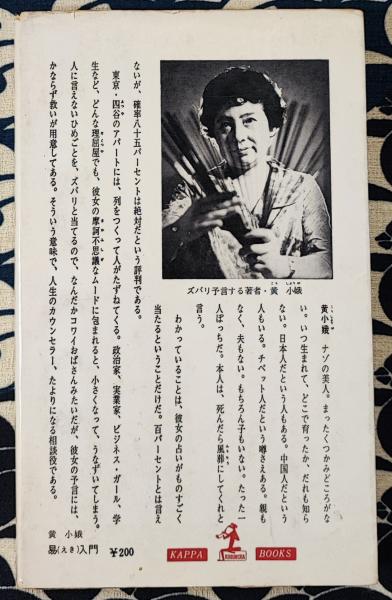 ズバリ予言する著者・黄 小娥
黄小娥 ナゾの美人。まったくつかみどころがな
い。いつ生まれて、どこで育ったか、だれも知ら
ない。日本人だという人もある。中国人だという
人もいる。チベット人だという噂さえある。親も
なく、夫もない。もちろん子もいない。たった一
人ぼっちだ。本人は、死んだら風葬にしてくれと
言う。
わかっていることは、彼女の占いがものすごく
当たるということだけだ。百パーセントとは言え
ないが、確率八十五パーセントは絶対だという評判である。
東京・四谷のアパートには、列をつくって人がたずねてくる。政治家、実業家、ビジネス・ガール、学
生など、どんな理屈屋でも、彼女の摩訶不思議なムードに包まれると、小さくなって、うなずいてしまう。
人に言えないひめごとを、ズバリと当てるので、なんだかコワイおばさんみたいだが、彼女の予言には、
かならず救いが用意してある。そういう意味で、人生のカウンセラー、たよりになる相談役である。
黄 小娥
易(えき)入門 ¥200
KAPPA BOOKS